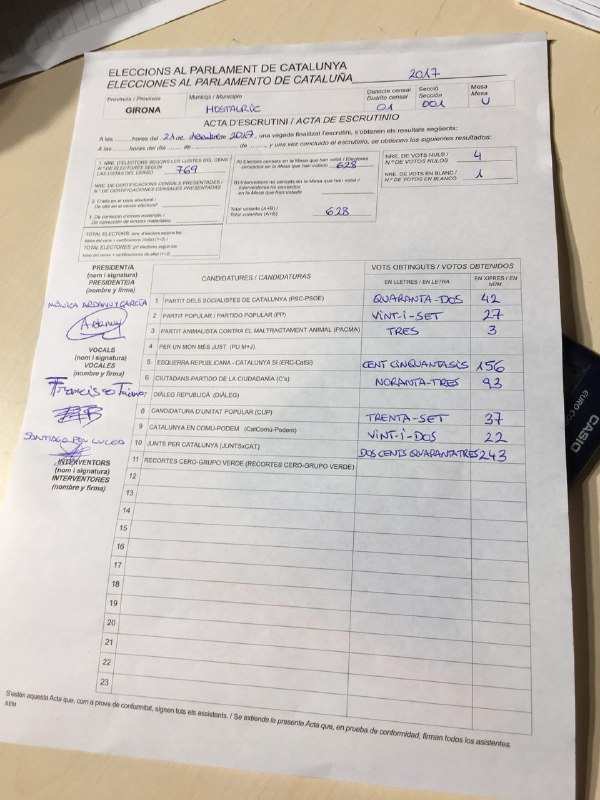 ELECCIONS AL PARLAMENT DE CATALUNYA
ELECCIONES AL PARLAMENTO DE CATALUÑA 2017
Província / Provincia
GIRONA
Municipi / Municipio
HOSTALRIC
Districte censal
Distrito censal
01
Secció
Sección
001
Mesa
Mesa
U
ACTA D'ESCRUTINI / ACTA DE ESCRUTINIO
A les ........hores del 21 de desembre 2017, una vegada finalitzat l'escrutini, s'obtenen els resultats següents:
A las ........horas del ...... de ...... de ......, y una vez concluido el escrutinio, se obtienen los siguientes resultados:
1. NRE. D'ELECTORS SEGONS LES LLISTES DEL CENS
N.º DE ELECTORES SEGÚN
LAS LISTAS DEL CENSO
769
NRE. DE CERTIFICACIONS CENSALS PRESENTADES /
N.º DE CERTIFICACIONES CENSALES PRESENTADAS
2. D'alta en el cens electoral /
De alta en el censo electoral
3. De correcció d'errors materials /
De corrección de errores materiales
TOTAL ELECTORS
TOTAL ELECTORES
A) Electors censats en la Mesa que han votat / Electores
censados en la Mesa que han votado 628
B) Interventors no censats en la Mesa que han votat /
Interventores no censados
en la Mesa que han votado
Total votants (A+B) /
Total votantes (A+B) 628
NRE. DE VOTS NULS /
N.º DE VOTOS NULOS
4
NRE. DE VOTS EN BLANC /
N.º DE VOTOS EN BLANCO
1
PRESIDENT/A
(nom i signatura)
PRESIDENTE/A
(nombre y firma)
MÒNICA ARDANUY GARCÍA
Ardanuy
VOCALS
(nom i signatura)
VOCALES
(nombre y firma)
SANTIAGO
INTERVENTORS
(nom i signatura)
INTERVENTORES
(nombre y firma)
CANDIDATURES / CANDIDATURAS
VOTS OBTINGUTS / VOTOS OBTENIDOS
EN LLETRES / EN LETRA
EN XIFRES / EN NÚM.
1 PARTIT DELS SOCIALISTES DE CATALUNYA (PSC-PSOE) QUARANTA-DOS 42
2 PARTIT POPULAR / PARTIDO POPULAR (PP) VINT-I-SET 27
3 PARTIT ANIMALISTA CONTRA EL MALTRACTAMENT ANIMAL (PACMA) TRES 3
4 PER UN MÓN MÉS JUST (PUM+J)
5 ESQUERRA REPUBLICANA - CATALUNYA SÍ (ERC-CatSí) CENT CINQUANTASIS 156
6 CIUTADANS-PARTIDO DE LA CIUDADANÍA (C's) NORANTA-TRES 93
DIÀLEG REPUBLICÀ (DIÀLEG)
8 CANDIDATURA D'UNITAT POPULAR (CUP) TRENTA-SET 37
9 CATALUNYA EN COMÚ-PODEM (CatComú-Podem) VINT-I-DOS 22
10 JUNTS PER CATALUNYA (JUNTSxCAT) DOS CENTS QUARANTATRES 243
11 RECORTES CERO-GRUPO VERDE (RECORTES CERO-GRUPO VERDE)
12
13
14
15
16
17
18
19
20
21
22
23
S'estén aquesta Acta que, com a prova de conformitat, signen tots els assistents. / Se extiende la presente Acta que, en prueba de conformidad, firman todos los asistentes.
AEM
CASIO
EURO